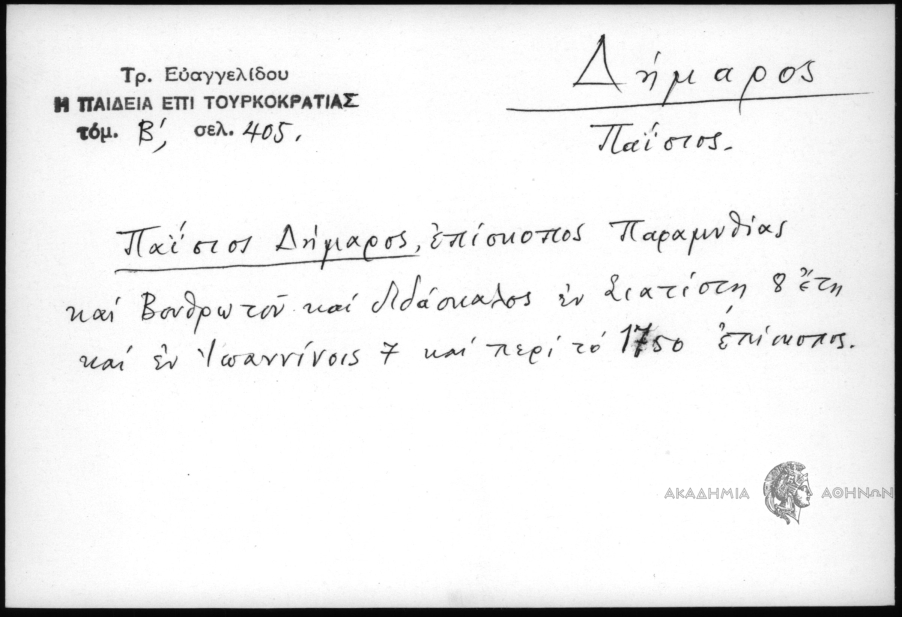 Τρ. Εὐαγγελίδου
Η ΠΑΙΔΕΙΑ ΕΠΙ ΤΟΥΡΚΟΚΡΑΤΙΑΣ
τόμ. Β', σελ. 405.
Δήμαρος
Παΐσιος.
Παΐσιος Δήμαρος, ἐπίσκοπος Παραμυθίας
καί Βουθρωτοῦ καί διδάσκαλος ἐν Σιατίστῃ 8 ἔτη
καί ἐν Ἰωαννίνοις 7 καί περί τό 1750 ἐπίσκοπος.
ΑΚΑΔΗΜΙΑ ΑΘΗΝΩΝ